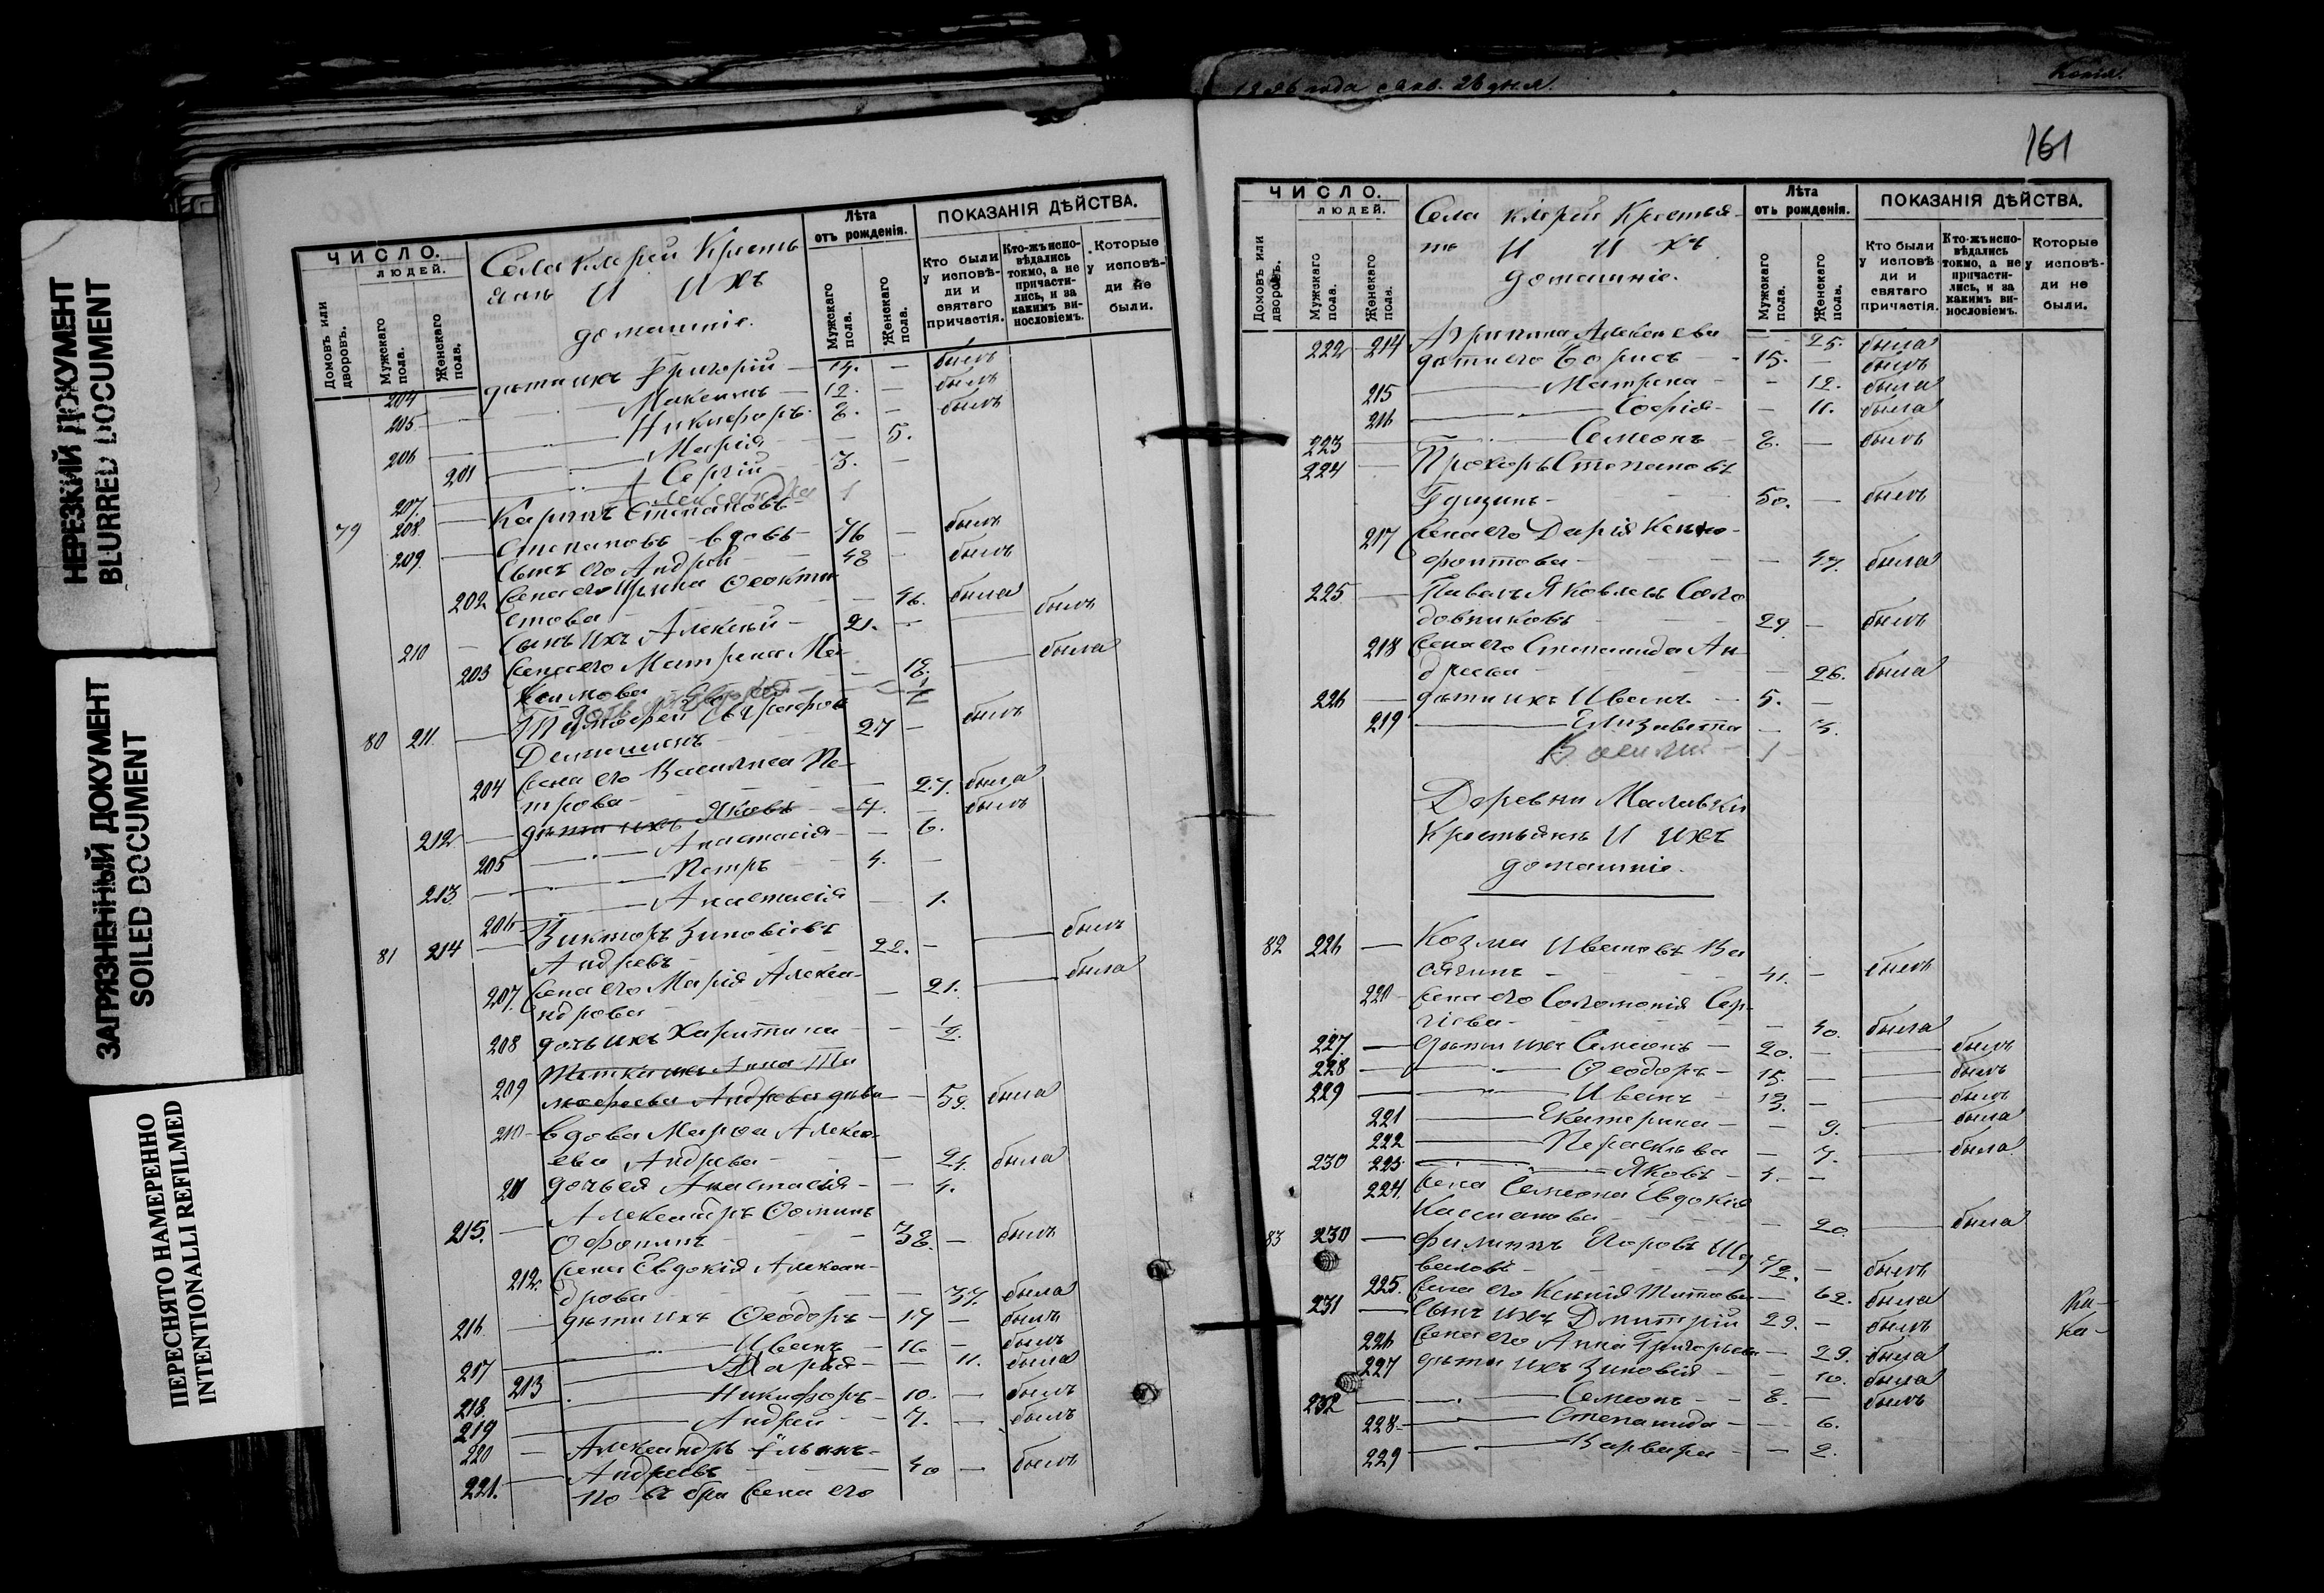 НЕРЕЗКИЙ ДОКУМЕНТ
BLURRED DOCUMENT
ЗАГРЯЗНЕННЫЙ ДОКУМЕНТ
SOILED DOCUMENT
ПЕРЕСНЯТО НАМЕРЕННО
INTENTIONALLI REFILMED
ЧИСЛО.
ЛЮДЕЙ.
Домовъ или дворовъ.
Мужскаго пола.
Женскаго пола.
домашніе.
Лѣта
отъ рожденія.
Мужскаго пола.
Женскаго пола.
ПОКАЗАНІЯ ДѢЙСТВА.
Кто были у исповѣди и святаго причастія.
Кто-жъ исповѣдались токмо, а не причастились, и за какимъ винословіемъ.
Которые у исповѣди не были.
204 дѣти ихъ Григорій 14. — былъ
205 Максимъ 12. — былъ
206 Никифоръ 8. — былъ
201 Марія — 5.
207. Сергій 3. —
Александра 1
79 208. Карпъ Степановъ
Степановъ вдовъ 76 — былъ
209. Сынъ его Андрей 48 — былъ
202 Жена его Ирина Ѳеокти
стова — 46. была
210 Сынъ ихъ Алексѣй 21. — былъ
203 Жена его Матрена Ма
ксимова — 18. была
80 211. Тимофей
27 — былъ
204 Жена его Василиса Пе
трова — 27. была
212 дѣти ихъ Яковъ 7. — былъ
205 Анастасія — 6.
213. Петръ 4. —
206 Анастасія — 1.
81 214 Викторъ Зиновіевъ
Андреевъ 22. — былъ
207. Жена его Марія Алекса
ндрова — 21. была
208 дочь ихъ Харитина
209 Тетка ихъ Анна Ти
мофеева Андреева дѣва — 59. была
210 вдова Марѳа Алексѣ
ева Андреева — 24. была
211 дочь ея Анастасія — 4.
215. Александръ Ѳоминъ
38. — былъ
212. Жена Евдокія Алексан
дрова — 37. была
216 дѣти ихъ Ѳеодоръ 17 — былъ
217 Иванъ 16 — былъ
213 Дарья — 11. была
218. Никифоръ 10. — былъ
219 Андрей 7. — былъ
220 Александръ Ильинъ
221. Андреевъ 40 — былъ
Жена его
161
ЧИСЛО.
ЛЮДЕЙ.
Домовъ или дворовъ.
Мужскаго пола.
Женскаго пола.
домашніе.
Лѣта
отъ рожденія.
Мужскаго пола.
Женскаго пола.
ПОКАЗАНІЯ ДѢЙСТВА.
Кто были у исповѣди и святаго причастія.
Кто-жъ исповѣдались токмо, а не причастились, и за какимъ винословіемъ.
Которые у исповѣди не были.
222 214 Агрипина Алексѣева — 25. была
дѣти его Борисъ 15. былъ
215 Матрена — 12. была
216 Софія — 11. была
223 Семеонъ 8. — былъ
224 Прохоръ Степановъ
50. — былъ
217 Жена его Дарія Ксено
фонтова — 47. была
225 Павелъ Яковлевъ Соло
довниковъ 29. — былъ
218 Жена его Степанида Ан
дреева — 26. была
226 дѣти ихъ Иванъ 5. —
219 Елизавета — 3.
Василий 1
Деревни
Крестьяне и ихъ
домашніе.
82 226 Козма Ивановъ Ва
сягинъ 41. — былъ
220 Жена его Соломонія Сер
гіева — 40. была
227. дѣти ихъ Семеонъ 20. — былъ
228 Ѳеодоръ 15. — былъ
229 Иванъ 13. — былъ
221 Екатерина — 9. была
222 Параскева — 7. была
230 223 Яковъ 4. —
224. Жена Семеона Евдокія
— 20. была
83 230 Филиппъ Егоровъ Ша
валовъ 72. — былъ
225. Жена его Ксенія Титова — 62. была
231 Сынъ ихъ Дмитрій 29. — былъ
226 Жена его Анна Григорьева — 29. была
227 дѣти ихъ Зиновія — 10. была
232 Семеонъ 8. — былъ
228 Степанида — 6.
229 Варвара — 2.